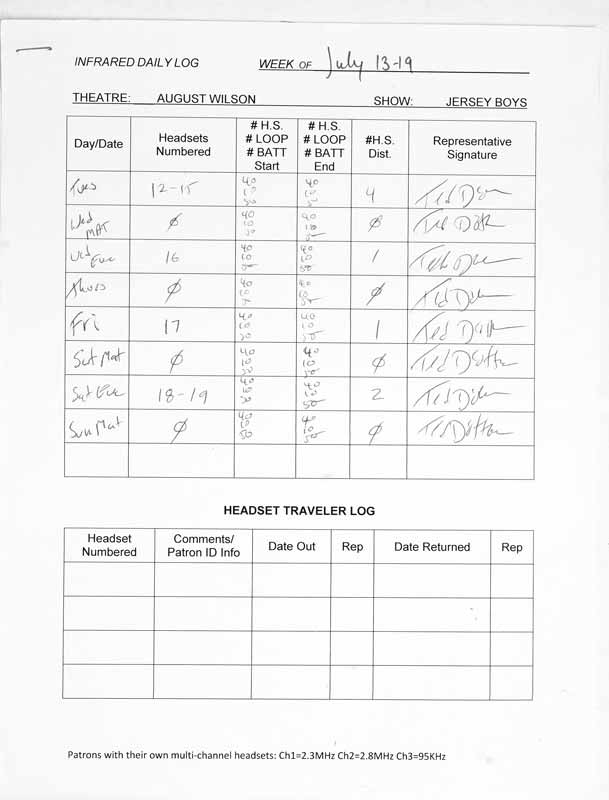 INFRARED DAILY LOG WEEK OF July 13-19
THEATRE: AUGUST WILSON SHOW: JERSEY BOYS
Day/Date Headsets Numbered # H.S. # LOOP # BATT Start # H.S. # LOOP # BATT End #H.S. Dist. Representative Signature
Tues 12-15 40 10 50 40 10 50 4 Ted
Wed MAT Ø 40 10 50 40 10 50 Ø Ted
Wed Eve 16 40 10 50 40 10 50 1 Ted
Thurs Ø 40 10 50 40 10 50 Ø Ted
Fri 17 40 10 50 40 10 50 1 Ted
Sat Mat Ø 40 10 50 40 10 50 Ø Ted Dutton
Sat Eve 18-19 40 10 50 40 10 50 2 Ted
Sun Mat Ø 40 10 50 40 10 50 Ø Ted Dutton
HEADSET TRAVELER LOG
Headset Numbered Comments/ Patron ID Info Date Out Rep Date Returned Rep
Patrons with their own multi-channel headsets: Ch1=2.3MHz Ch2=2.8MHz Ch3=95KHz